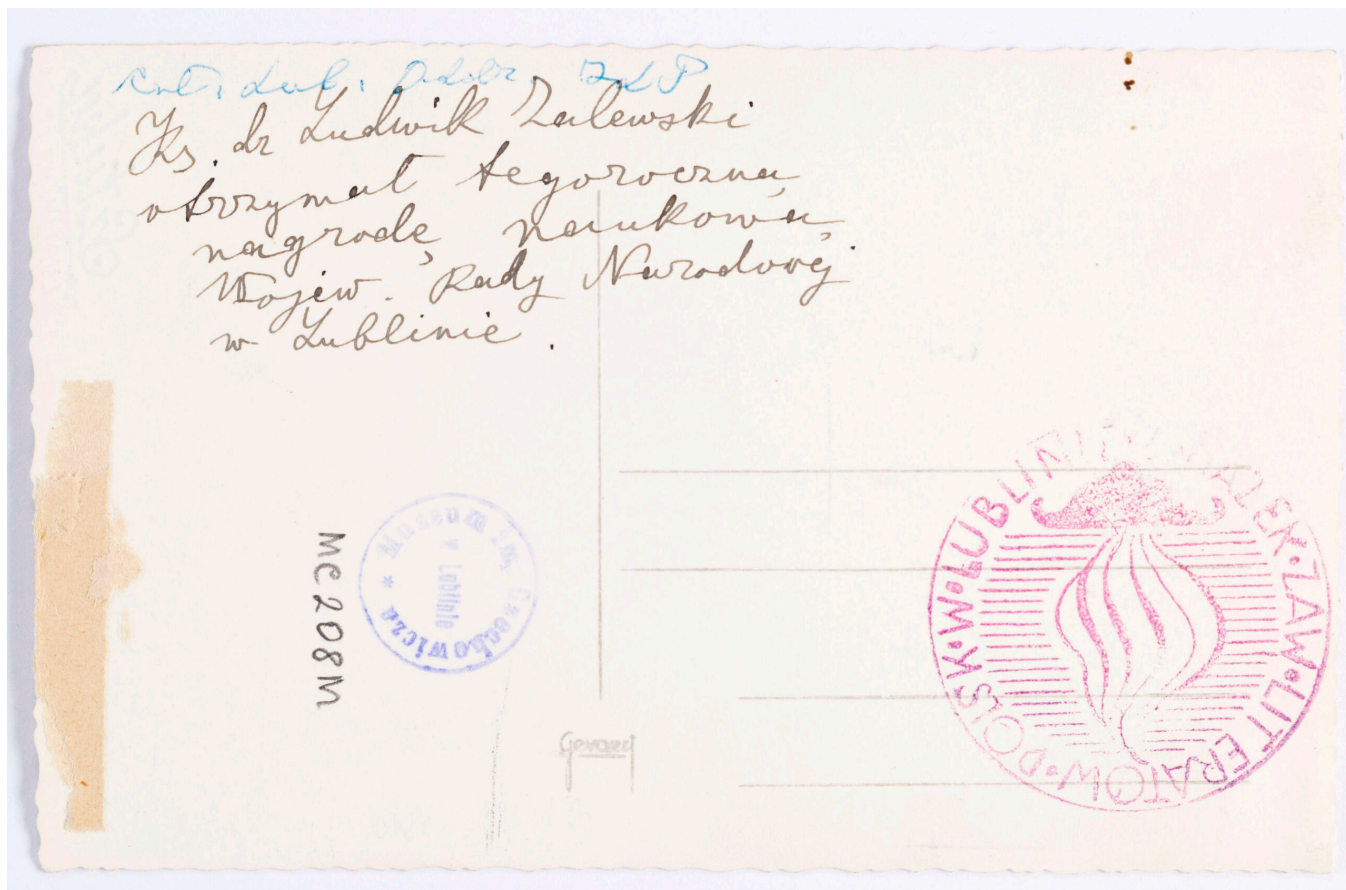 Ks. dr Ludwik Zalewski
otrzymał tegoroczną
nagrodę naukową
Wojew. Rady Narodowej
w Lublinie.
MC208M
Muzeum im. Czechowicza *
w Lublinie
Gevaert
ZAW•LITERATÓW•POLSK•W•LUBLINIE